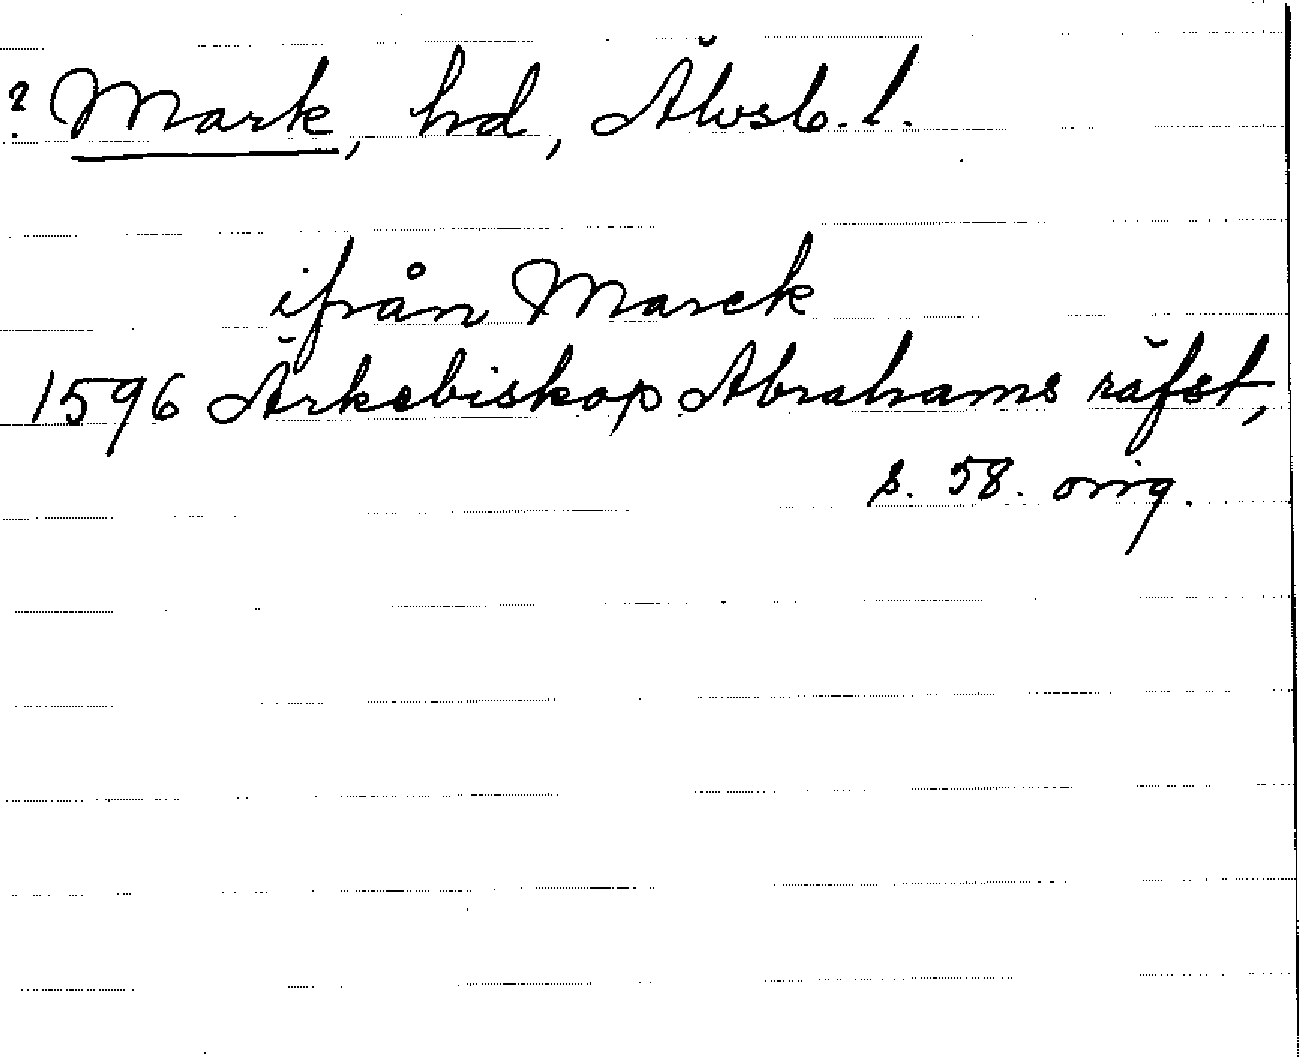 ? Mark, hd, Älvsb. l.
ifrån Marck
1596 Ärkebiskop Abrahams räfst,
s. 58. orig.